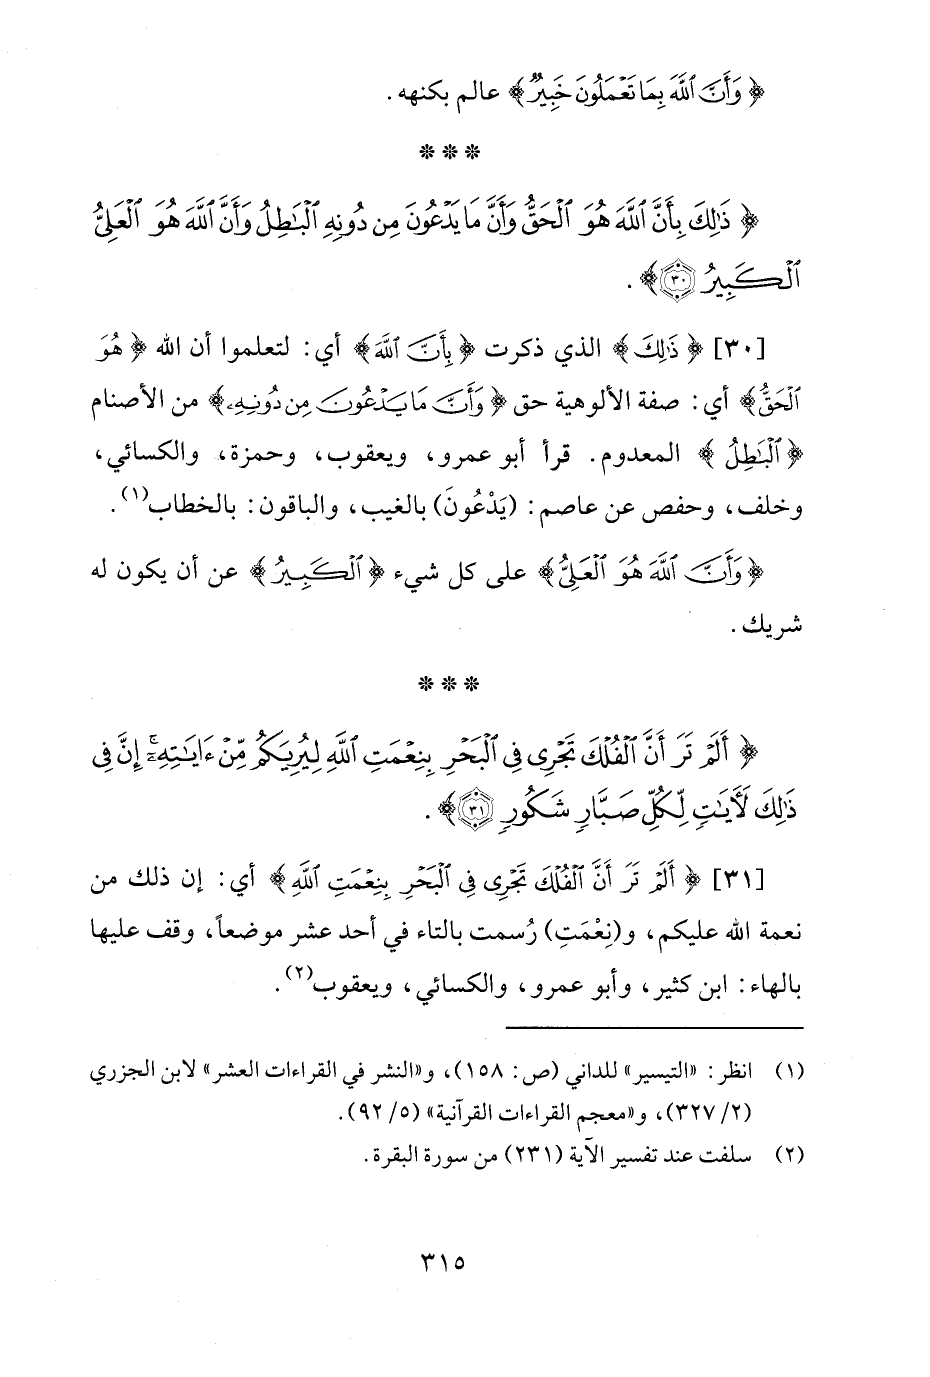 ﴿وَأَنَّ ٱللَّهَ بِمَا تَعْمَلُونَ خَبِيرٌ﴾ عالم بكنهه.
* * *
﴿ذَٰلِكَ بِأَنَّ ٱللَّهَ هُوَ ٱلْحَقُّ وَأَنَّ مَا يَدْعُونَ مِن دُونِهِ ٱلْبَٰطِلُ وَأَنَّ ٱللَّهَ هُوَ ٱلْعَلِىُّ
ٱلْكَبِيرُ ٣٠﴾.
[٣٠] ﴿ذَٰلِكَ﴾ الذي ذكرت ﴿بِأَنَّ ٱللَّهَ﴾ أي: لتعلموا أن الله ﴿هُوَ
ٱلْحَقُّ﴾ أي: صفة الألوهية حق ﴿وَأَنَّ مَا يَدْعُونَ مِن دُونِهِۦ﴾ من الأصنام
﴿ٱلْبَٰطِلُ﴾ المعدوم. قرأ أبو عمرو، ويعقوب، وحمزة، والكسائي،
وخلف، وحفص عن عاصم: (يَدْعُونَ) بالغيب، والباقون: بالخطاب(١).
﴿وَأَنَّ ٱللَّهَ هُوَ ٱلْعَلِىُّ﴾ على كل شيء ﴿ٱلْكَبِيرُ﴾ عن أن يكون له
شريك.
* * *
﴿أَلَمْ تَرَ أَنَّ ٱلْفُلْكَ تَجْرِى فِى ٱلْبَحْرِ بِنِعْمَتِ ٱللَّهِ لِيُرِيَكُم مِّنْ ءَايَٰتِهِۦٓ ۚ إِنَّ فِى
ذَٰلِكَ لَءَايَٰتٍ لِّكُلِّ صَبَّارٍ شَكُورٍ ٣١﴾.
[٣١] ﴿أَلَمْ تَرَ أَنَّ ٱلْفُلْكَ تَجْرِى فِى ٱلْبَحْرِ بِنِعْمَتِ ٱللَّهِ﴾ أي: إن ذلك من
نعمة الله عليكم، و(نِعْمَتِ) رُسمت بالتاء في أحد عشر موضعاً، وقف عليها
بالهاء: ابن كثير، وأبو عمرو، والكسائي، ويعقوب(٢).
(١) انظر: «التيسير» للداني (ص: ١٥٨)، و«النشر في القراءات العشر» لابن الجزري
(٢/ ٣٢٧)، و«معجم القراءات القرآنية» (٥/ ٩٢).
(٢) سلفت عند تفسير الآية (٢٣١) من سورة البقرة.
٣١٥